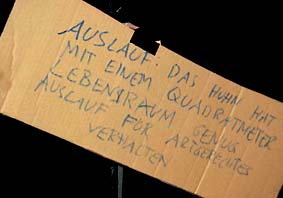 AUSLAUF: DAS HUHN HAT
MIT EINEM QUADRATMETER
LEBENSRAUM GENUG
AUSLAUF FÜR ARTGERECHTES
VERHALTEN